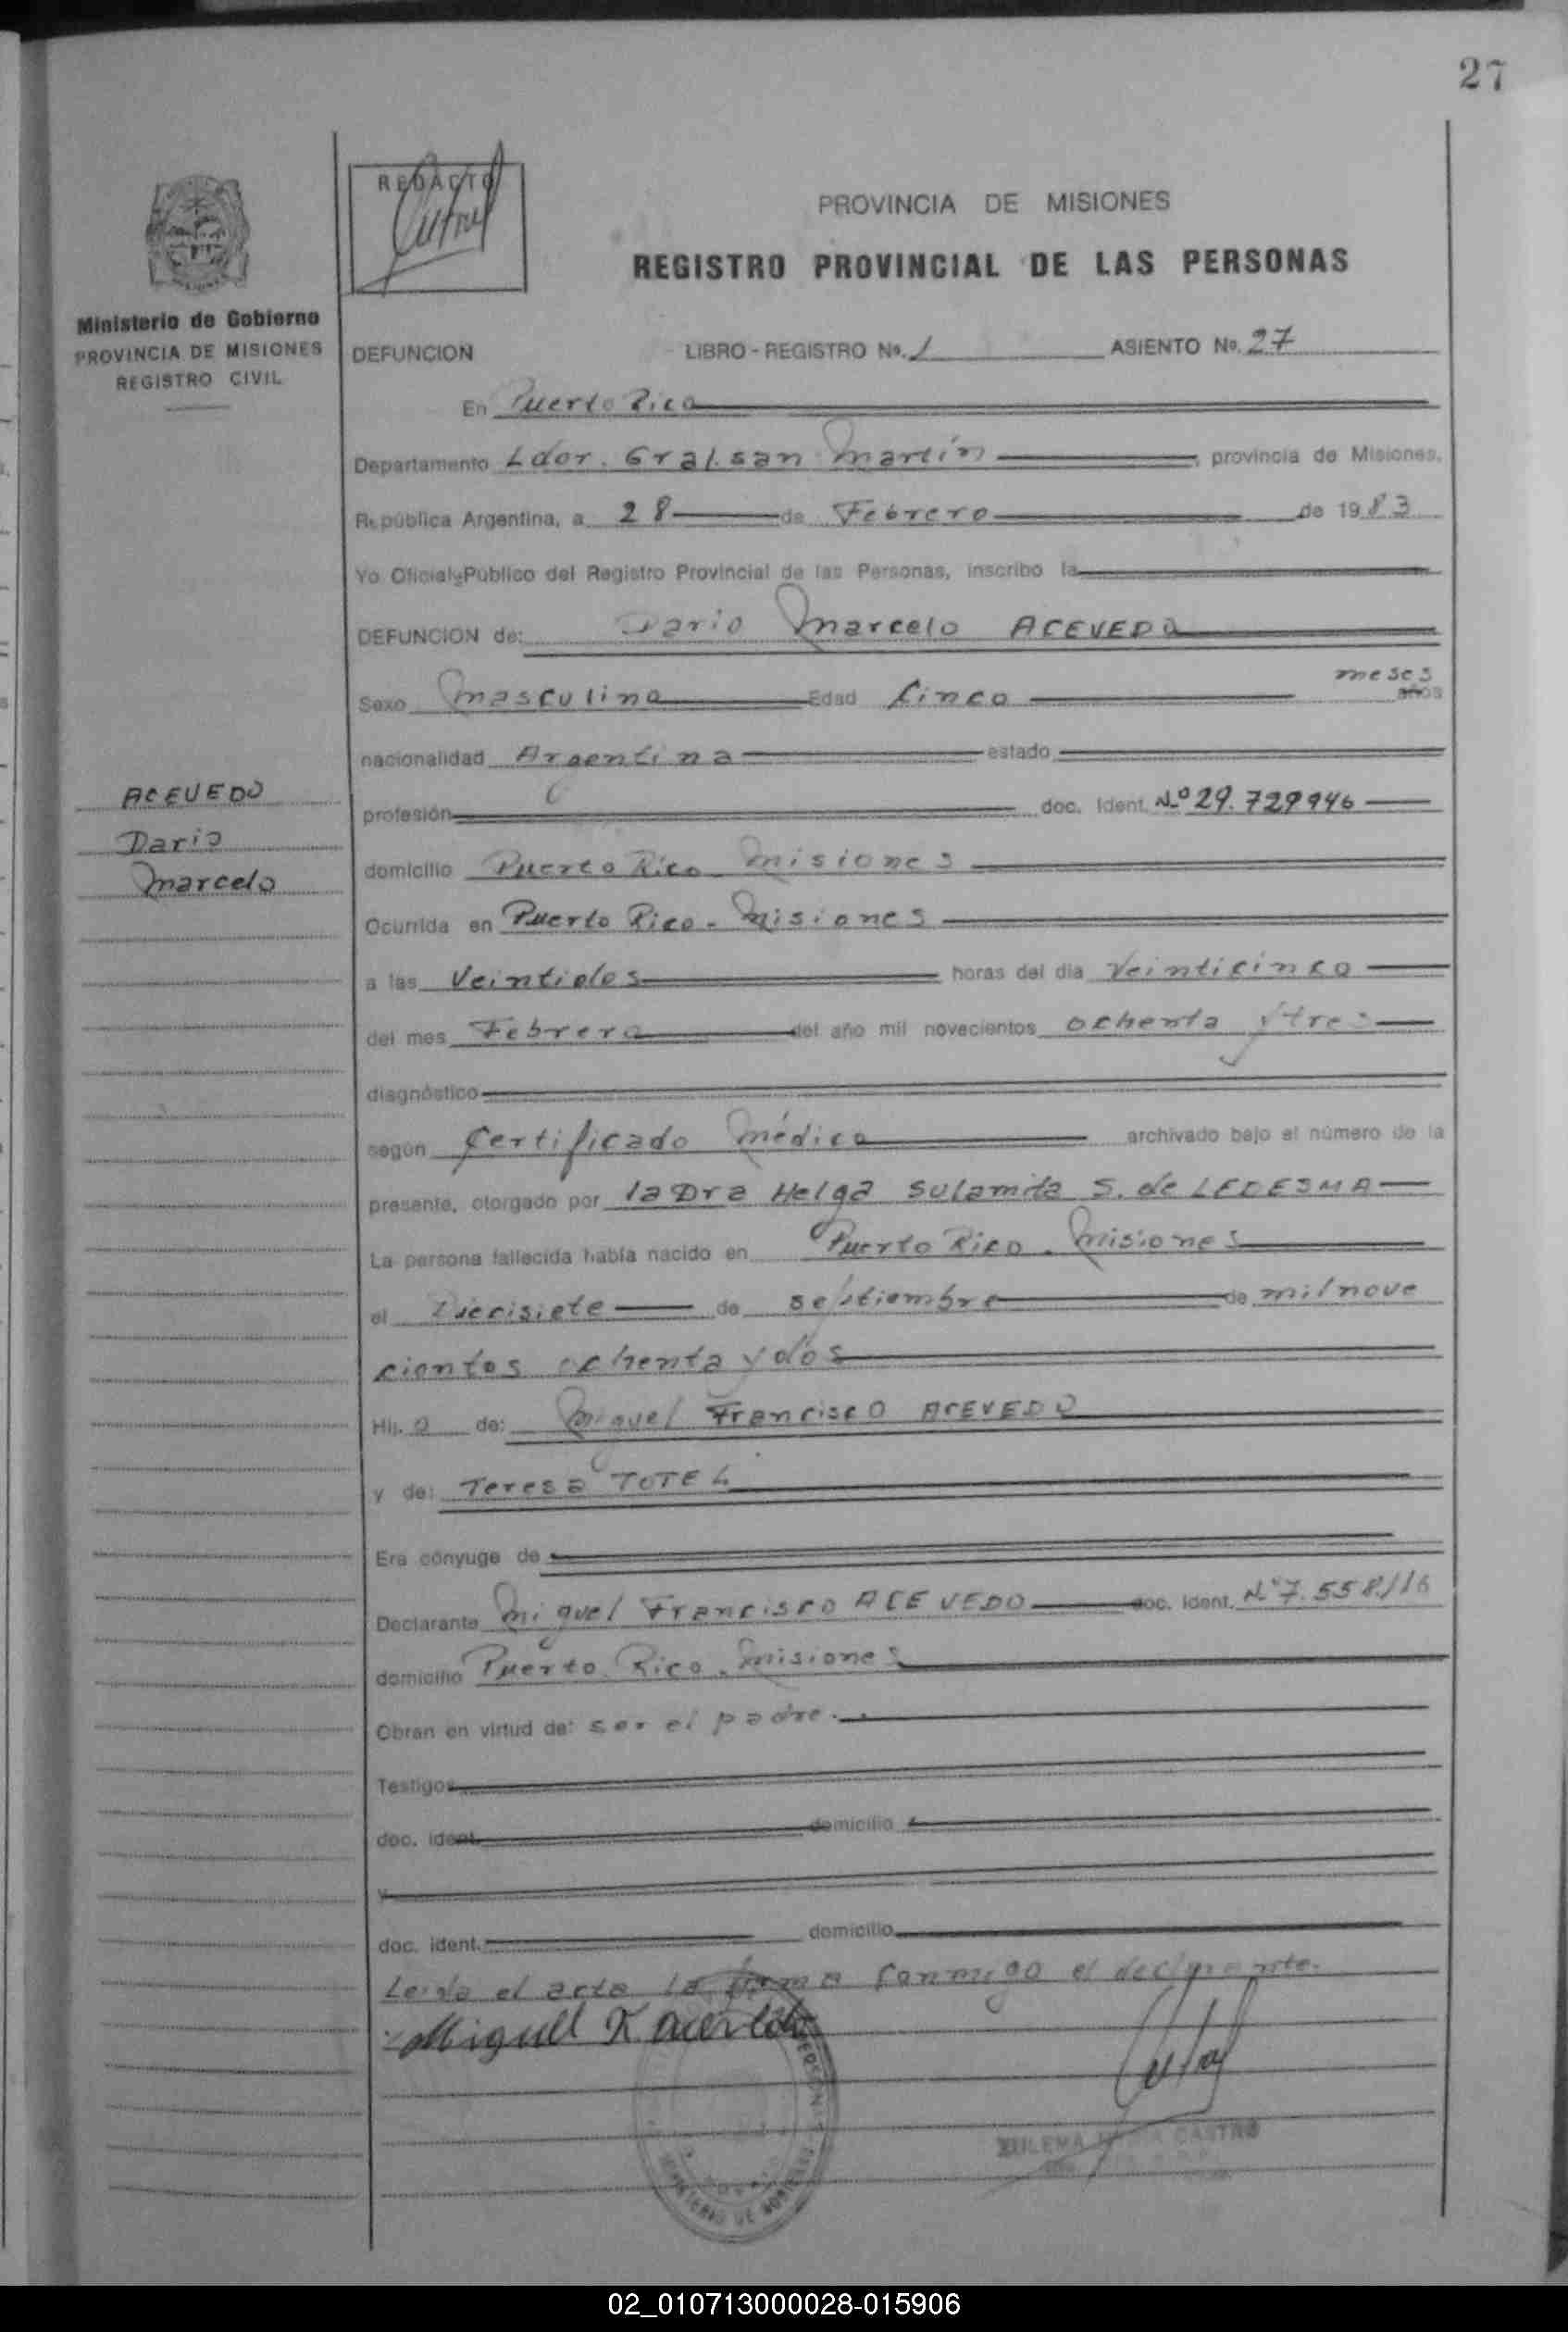 27
REDACTO
PROVINCIA DE MISIONES
REGISTRO PROVINCIAL DE LAS PERSONAS
Ministerio de Gobierno
PROVINCIA DE MISIONES
REGISTRO CIVIL
DEFUNCION LIBRO - REGISTRO No. 1 ASIENTO No. 27
En Puerto Rico
Departamento Ldor. Gral. san Martín, provincia de Misiones.
República Argentina, a 28 de Febrero de 1983
Yo Oficial Público del Registro Provincial de las Personas, inscribo la
DEFUNCION de: Dario Marcelo ACEVEDO
Sexo masculino Edad Cinco meses años
nacionalidad Argentina estado
ACEVEDO
Dario
Marcelo
profesión doc. Ident. Nº 29.729946
domicilio Puerto Rico Misiones
Ocurrida en Puerto Rico - Misiones
a las Veintidos horas del día Veinticinco
del mes Febrero del año mil novecientos ochenta y tres
diagnóstico
según Certificado Médico archivado bajo el número de la
presente, otorgado por la Dra Helga Sulamita S. de LEDESMA
La persona fallecida había nacido en Puerto Rico. Misiones
el Diecisiete de septiembre de mil nove
cientos ochenta y dos
Hij. o de: Miguel Francisco ACEVEDO
y de: Teresa TOTEL
Era cónyuge de
Declarante Miguel Francisco ACEVEDO doc. Ident. Nº 7.558.116
domicilio Puerto Rico. Misiones
Obran en virtud de: ser el padre.
Testigos
doc. ident. domicilio
y
doc. ident. domicilio
Leida el acta la firma conmigo el declarante.
Miguel F acevedo
ZULEMA CASTRO
MINISTERIO DE GOBIERNO
02_010713000028-015906